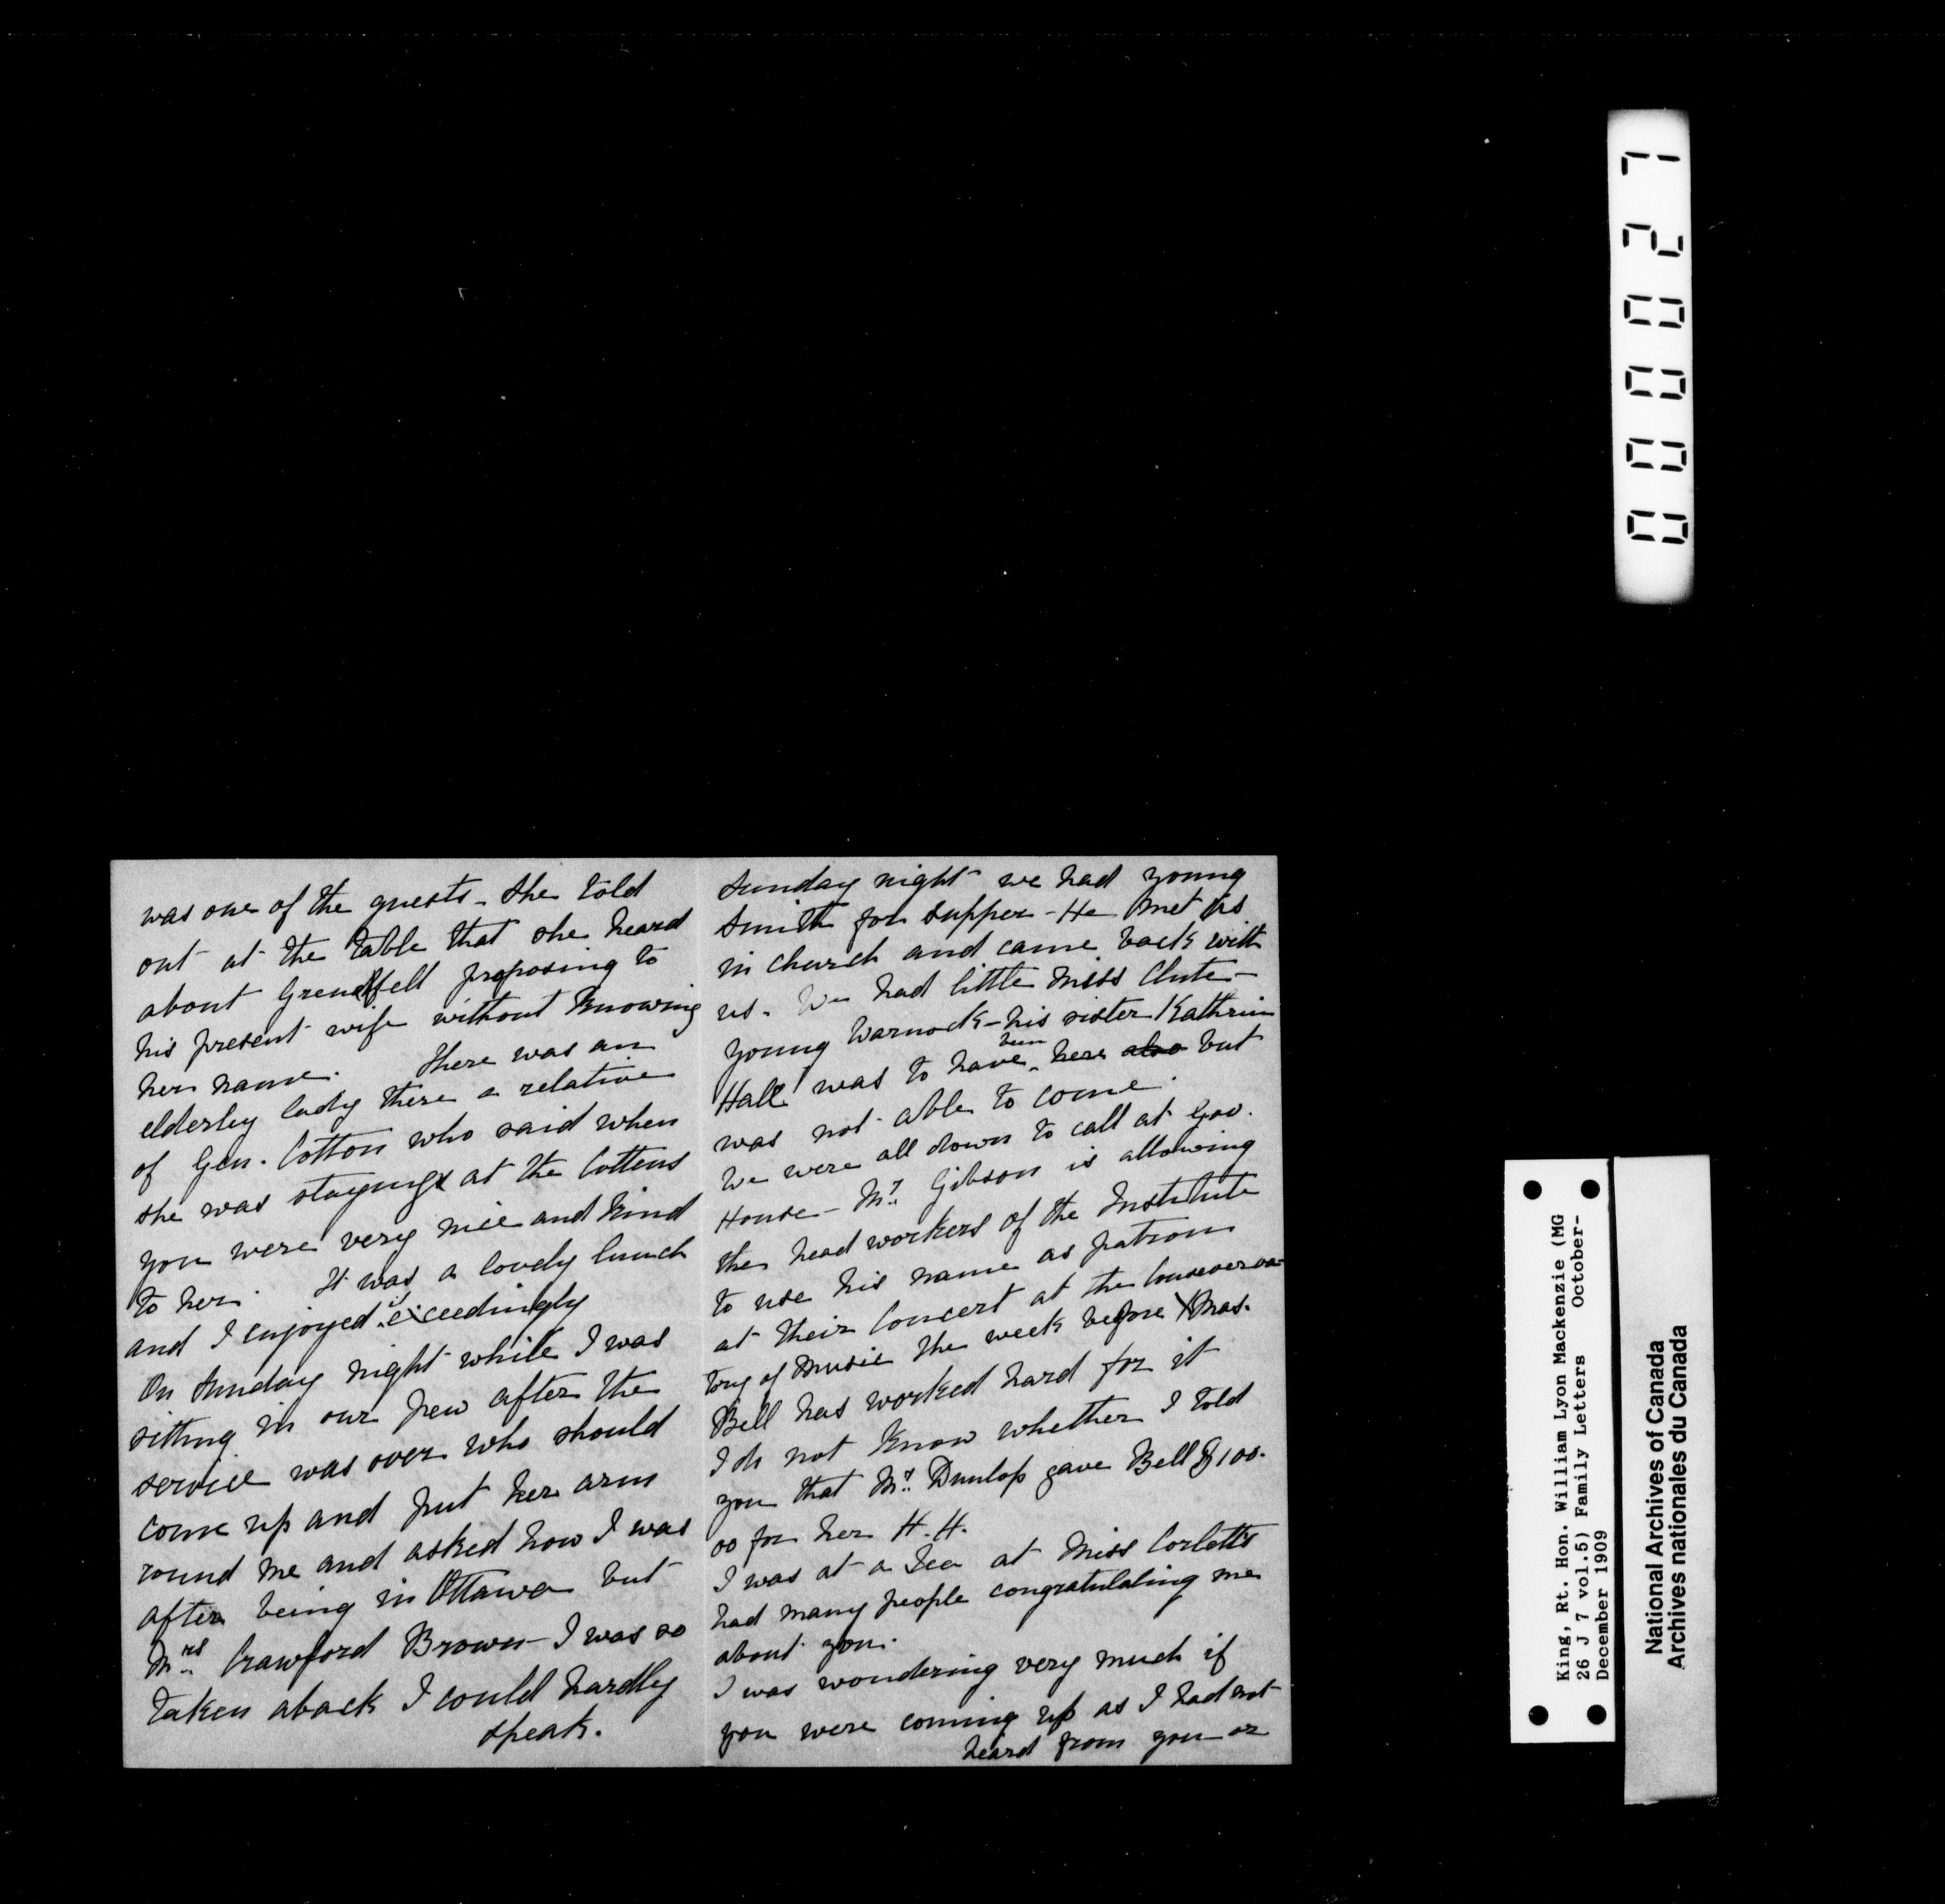 was one of the guests - She told
out at the table that she heard
about Grendfell proposing to
his present wife without knowing
her name. There was an
elderley lady there a relative
of Gen. Cotton who said when
she was staying at the Cottens
you were very nice and kind
to her. It was a lovely lunch
and I enjoyed it exceedingly
On Sunday night while I was
sitting in our pew after the
service was over who should
come up and put her arm
round me and asked how I was
after being in Ottawa but
Mrs Crawford Brown - I was so
taken aback I could hardly
speak.
Sunday night we had young
Smith for supper - He met us
in church and came back with
us. We had little Miss Clute -
young Warnock - his sister Kathrin
Hall was to have been here also but
was not able to come.
We were all down to call at Gov.
House - Mr. Gibson is allowing
the head workers of the Institute
to use his name as patron
at their Concert at the Conserva
tory of Music the week before Xmas.
Bell has worked hard for it
I do not know whether I told
you that Mr. Dunlop gave Bell $100.
00 for her H. H.
I was at a Tea at Miss Corletts
had many people congratulating me
about you.
I was wondering very much if
you were coming up as I had not
heard from you or
000027
King, Rt. Hon. William Lyon Mackenzie (MG
26 J 7 vol.5) Family Letters October-
December 1909
National Archives of Canada
Archives nationales du Canada